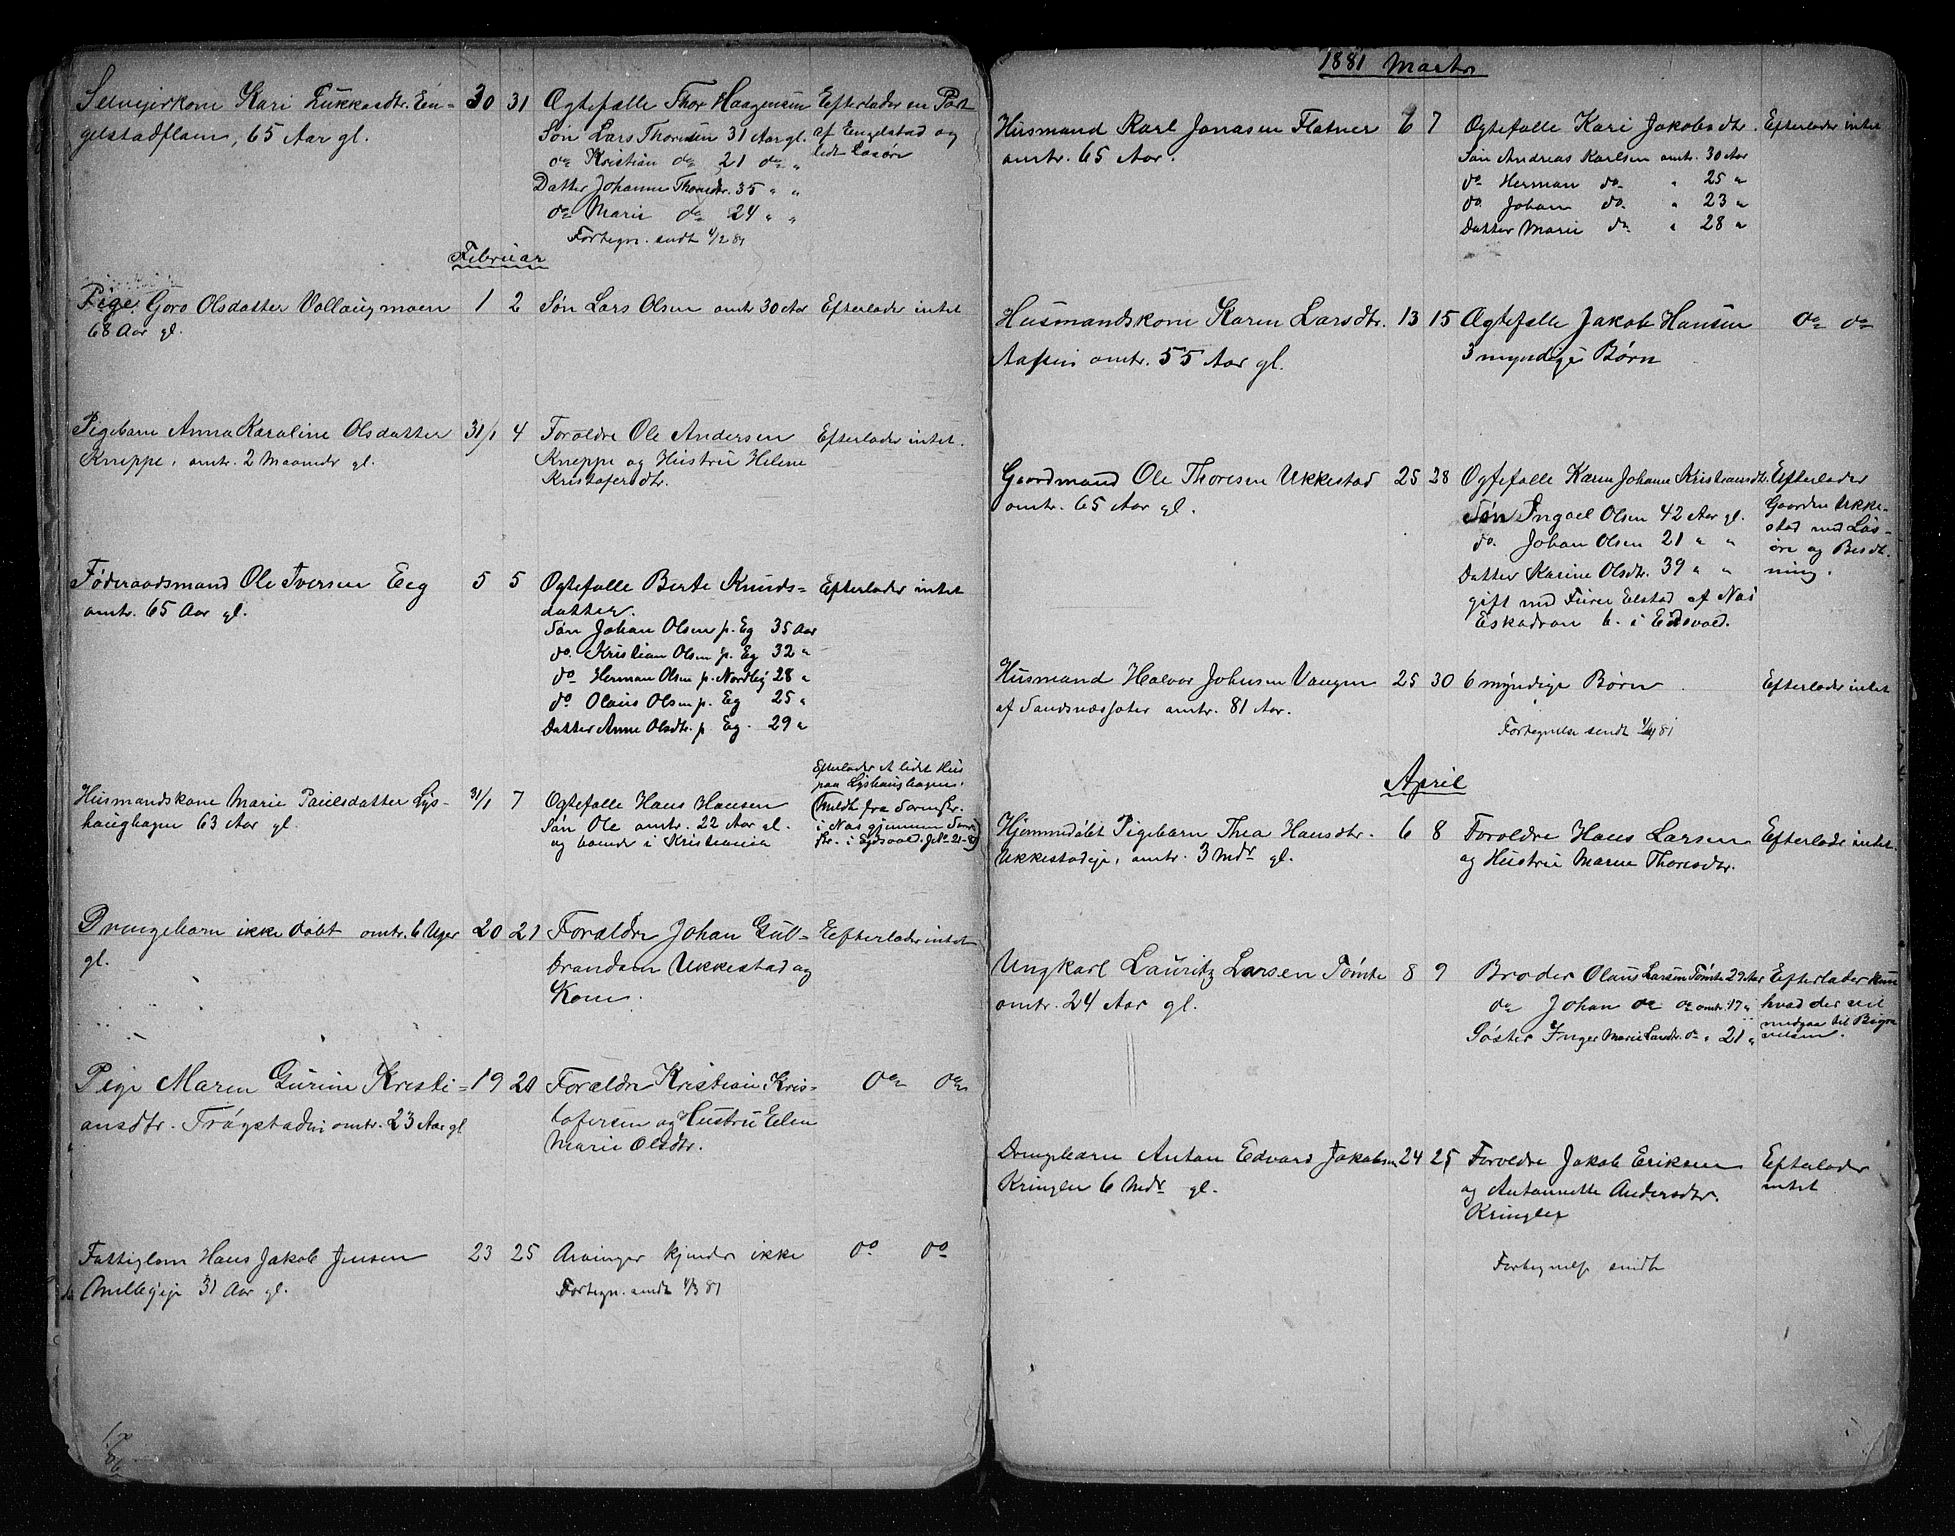 Selveierkone Kari Lukkasdtr. En- 30 31 Ægtefælle Thor Haagensen Efterlader en Part
gelstadflaen, 65 Aar gl. Søn Lars Thoresen 31 Aar gl. af Engelstad og
do Kristian do 21 do " lidt Løsøre
Datter Johanne Thoresdtr. 35 " "
do Marie do 24 " "
Fortegn. sendt 1/2 81
Februar
Pige Goro Olsdatter Vollaugmoen 1 2 Søn Lars Olsen omtr 30 Aar Efterlader intet
68 Aar gl.
Pigebarn Anna Karoline Olsdatter 31/1 4 Forældre Ole Andersen Efterlader intet.
Kneppe, omtr. 2 Maaneder gl. Kneppe og Hustru Helene
Kristofersdtr.
Føderaadsmand Ole Iversen Eeg 5 5 Ægtefælle Berte Knuds- Efterlader intet
omtr. 65 Aar gl. datter.
Søn Johan Olsen p. Eg 35 Aar
do. Kristian Olsen p. Eg 32 "
do Herman Olsen p. Nordbÿ 28 "
do Olaus Olsen p. Eg 25 "
Datter Anne Olsdtr. p Eg. 29 "
Husmandskone Marie Paulsdatter Lys- 31/1 7 Ægtefælle Hans Hansen Efterlader et lidet Hus
haughagen 63 Aar gl. Søn Ole omtr. 22 Aar gl. paa Lyshaughagen.
og boende i Kristiania (Meldt fra
i Næs gjennem
i Eidsvold.
Drengebarn ikke døbt omtr. 6 Uger 20 21 Forældre Johan Gul- Efterlader intet
gl. brandsen Ukkestad og
Kone.
Pige Maren Gurine Kristi- 19 20 Forældre Kristian Kris- do do
ansdtr. Frøgstadei omtr. 23 Aar gl tofersen og Hustru Elen
Marie Olsdtr.
Fattiglem Hans Jakob Jensen 23 25 Arvinger kjendes ikke do do
Millegeie 31 Aar gl. Fortegn. sendt 1/3 81
1881 Marts
Husmand Karl Jonasen Flatner 6 7 Ægtefælle Kari Jakobsdtr. Efterlader intet
omtr. 65 Aar. Søn Andreas Karlsen omtr. 30 Aar
do Herman do. " 25 "
do. Johan do. " 23 "
Datter Marie do " 28 "
Husmandskone Karen Larsdtr. 13 15 Ægtefælle Jakob Hansen do do
omtr. 55 Aar gl. 3 myndige Børn
Gaardmand Ole Thoresen Ukkestad 25 28 Ægtefælle Karen Johanne Kristiansdtr. Efterlader
omtr. 65 Aar gl. Søn Ingvel Olsen 42 Aar gl. Gaarden Ukke-
do. Johan Olsen 21 " " stad med Løs-
Datter Karine Olsdtr. 39 " " øre og Besæt-
gift med Furer Elstad af Næs ning.
Eskadron b. i Eidsvold.
Husmand Halvor Johnsen Vangen 25 30 6 myndige Børn Efterlader intet
af Sandsnæssæter omtr. 81 Aar. Fortegnelse sendt 1/4 81
April
Hjemmedøbt Pigebarn Thea Hansdtr. 6 8 Forældre Hans Larsen Efterlade intet.
Ukkestadeje, omtr. 3 Mdr gl. og Hustru Maren Thoresdtr.
Ungkarl Lauritz Larsen Tømte 8 9 Broder Olaus Larsen Tømte 29 Aar Efterlader kun
omtr. 24 Aar gl. do Johan do do omtr. 17 " hvad der vil
Søster Inger Marie Larsdtr. do " 21 " medgaa til Begra
velsen.
Drengebarn Anton Edvard Jakobsen 24 25 Forældre Jakob Eriksen Efterlader
Kringler 6 Mdr gl. og Antonnette Andersdtr. intet
Kringler
Fortegnelse sendt